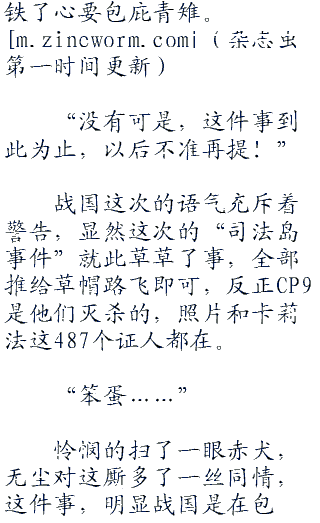 铁了心要包庇青雉。
[m.zincworm.com|（杂志虫
第一时间更新）
“没有可是，这件事到
此为止，以后不准再提！”
战国这次的语气充斥着
警告，显然这次的“司法岛
事件”就此草草了事，全部
推给草帽路飞即可，反正CP9
是他们灭杀的，照片和卡莉
法这487个证人都在。
“笨蛋……”
怜悯的扫了一眼赤犬，
无尘对这厮多了一丝同情，
这件事，明显战国是在包